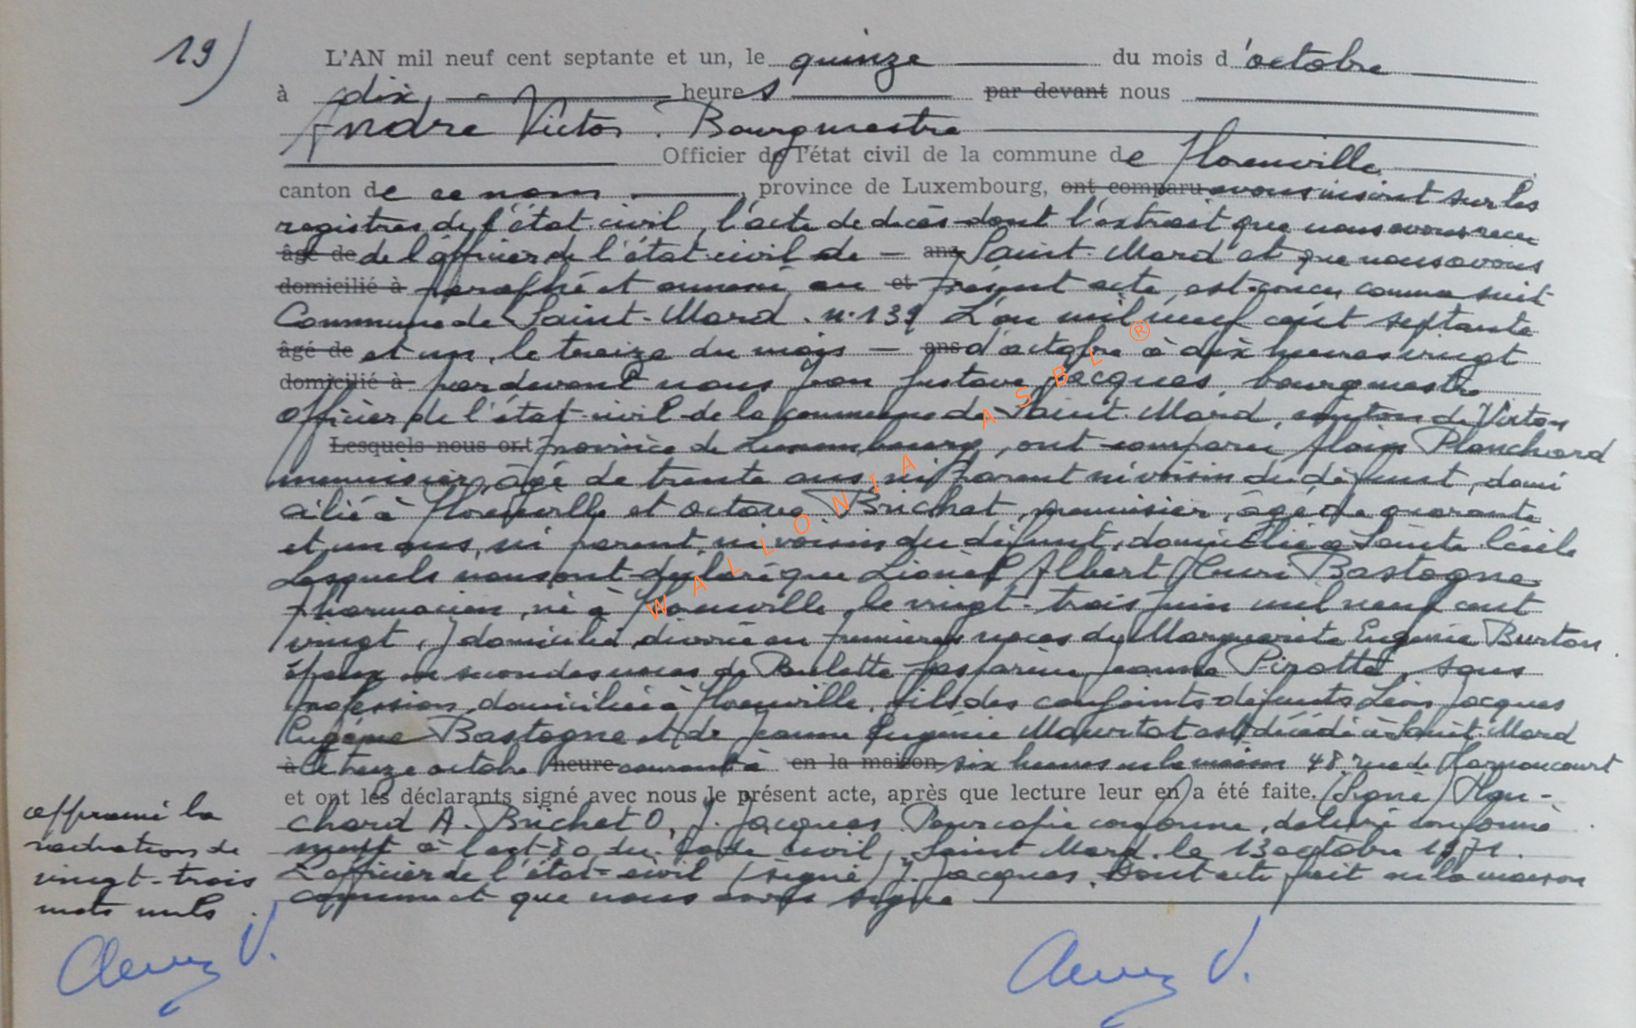 19)
L'AN mil neuf cent septante et un, le quinze du mois d'octobre
à dix heures par devant nous
André Victor. Bourgmestre
Officier de l'état civil de la commune de Florenville
canton de ce nom, province de Luxembourg, ont comparu avons inscrit sur les
registres de l'état civil, l'acte de décès dont l'extrait que nous avons recu
âgé de de l'officier de l'état civil de ans Saint-Mard et que nous avons
domicilié à paraphé et annexé au et présent acte, est concu comme suit
Commune de Saint-Mard. n° 139 L'an mil neuf cent septante
âgé de et un, le treize du mois ans d'octobre à dix heures vingt
domicilié à par devant nous Jean Gustave Jacques, bourgmestre
officier de l'état-civil de la commune de Saint Mard, canton de Virton
Lesquels nous ont province de Luxembourg, ont comparu Alain Planchard
menuisier, âgé de trente ans, ni parent ni voisin du défunt, domi
cilié à Florenville et Octave Brichet, menuisier, âgé de quarante
et un ans, ni parent, ni voisin du défunt, domicilié à Sainte Cécile
Lesquels nous ont déclaré que Lionel Albert Henri Bastogne
pharmacien, né à Florenville, le vingt-trois juin mil neuf cent
vingt, y domicilié, divorcé en premières noces de Marguerite Eugénie Burton
époux en secondes noces de Paulette Jeanne Pirotte, sans
profession, domiciliée à Florenville, fils des conjoints défunts Léon Jacques
Eugène Bastogne et de Jeanne Eugénie est décédé à Saint-Mard
à le treize octobre heure courant à en la maison six heures en la maison 48 rue de Harnoncourt
et ont les déclarants signé avec nous le présent acte, après que lecture leur en a été faite. (Signé) Plan-
chard A. Brichet O, J. Jacques. Pour copie conforme, délivré conformé
ment à l'art 80 du Code civil, Saint Mard, le 13 octobre 1971.
L'officier de l'état-civil (signé) J. Jacques. Dont acte fait en la maison
commune et que nous avons signé
approuvé la
radiation de
vingt-trois
mots nuls
V.
V.
WALLONIA ASBL ®